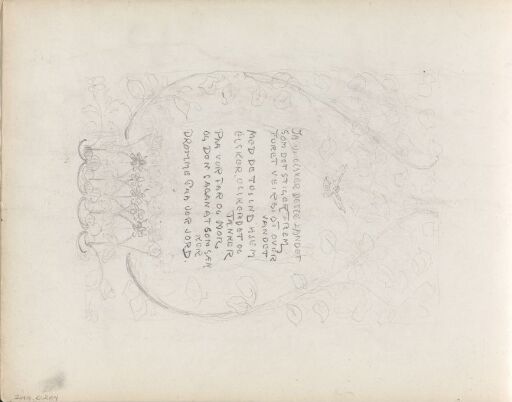 JA VI ELSKER DETTE LANDET
SOM DET STIGER FREM
FURET VEIRBIDT OVER
VANDET
MED DE TUSEND HJEM
ELSKER ELSKER DET OG
TÆNKER
PAA VOR FAR OG MOR,
OG DEN SAGANAT SOM SÆN
KER
DRØMME PAA VOR JORD.